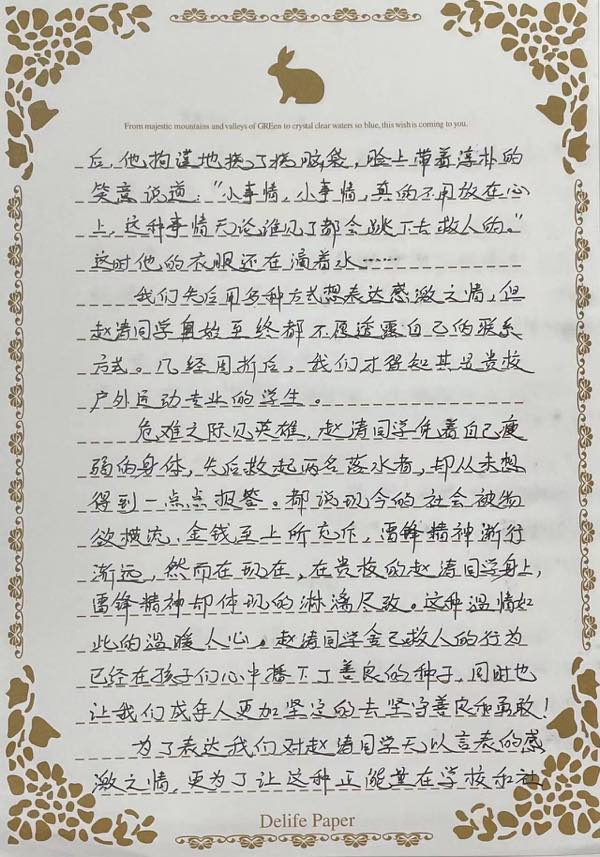 From majestic mountains and valleys of GREen to crystal clear waters so blue, this wish is coming to you.
后，他拘谨地挠了挠脑袋，脸上带着淳朴的
笑意说道：“小事情，小事情，真的不用放在心
上，这种事情无论谁见了都会跳下去救人的。”
这时他的衣服还在滴着水……
我们先后用多种方式想表达感激之情，但
赵涛同学自始至终都不愿透露自己的联系
方式。几经周折后，我们才得知其是贵校
户外运动专业的学生。
危难之际见英雄，赵涛同学凭着自己瘦
弱的身体，先后救起两名落水者，却从未想
得到一点点报答。都说现今的社会被物
欲横流、金钱至上所充斥，雷锋精神渐行
渐远，然而在现在，在贵校的赵涛同学身上，
雷锋精神却体现的淋漓尽致。这种温情如
此的温暖人心。赵涛同学舍己救人的行为
已经在孩子们心中播下了善良的种子，同时也
让我们成年人更加坚定的去坚守善良和勇敢！
为了表达我们对赵涛同学无以言表的感
激之情，更为了让这种正能量在学校和社
Delife Paper